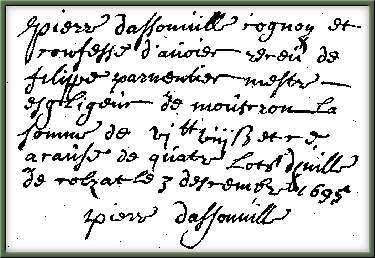 pierre dassonville cognoy et
confesse d'avoier receu de
filippe parmentier mestre
esgliseur de mouscron la
somme de vi tt viiiß et ce
a cause de quatre lots d'uille
de colzat le 3 descembre 1695
pierre dassonville